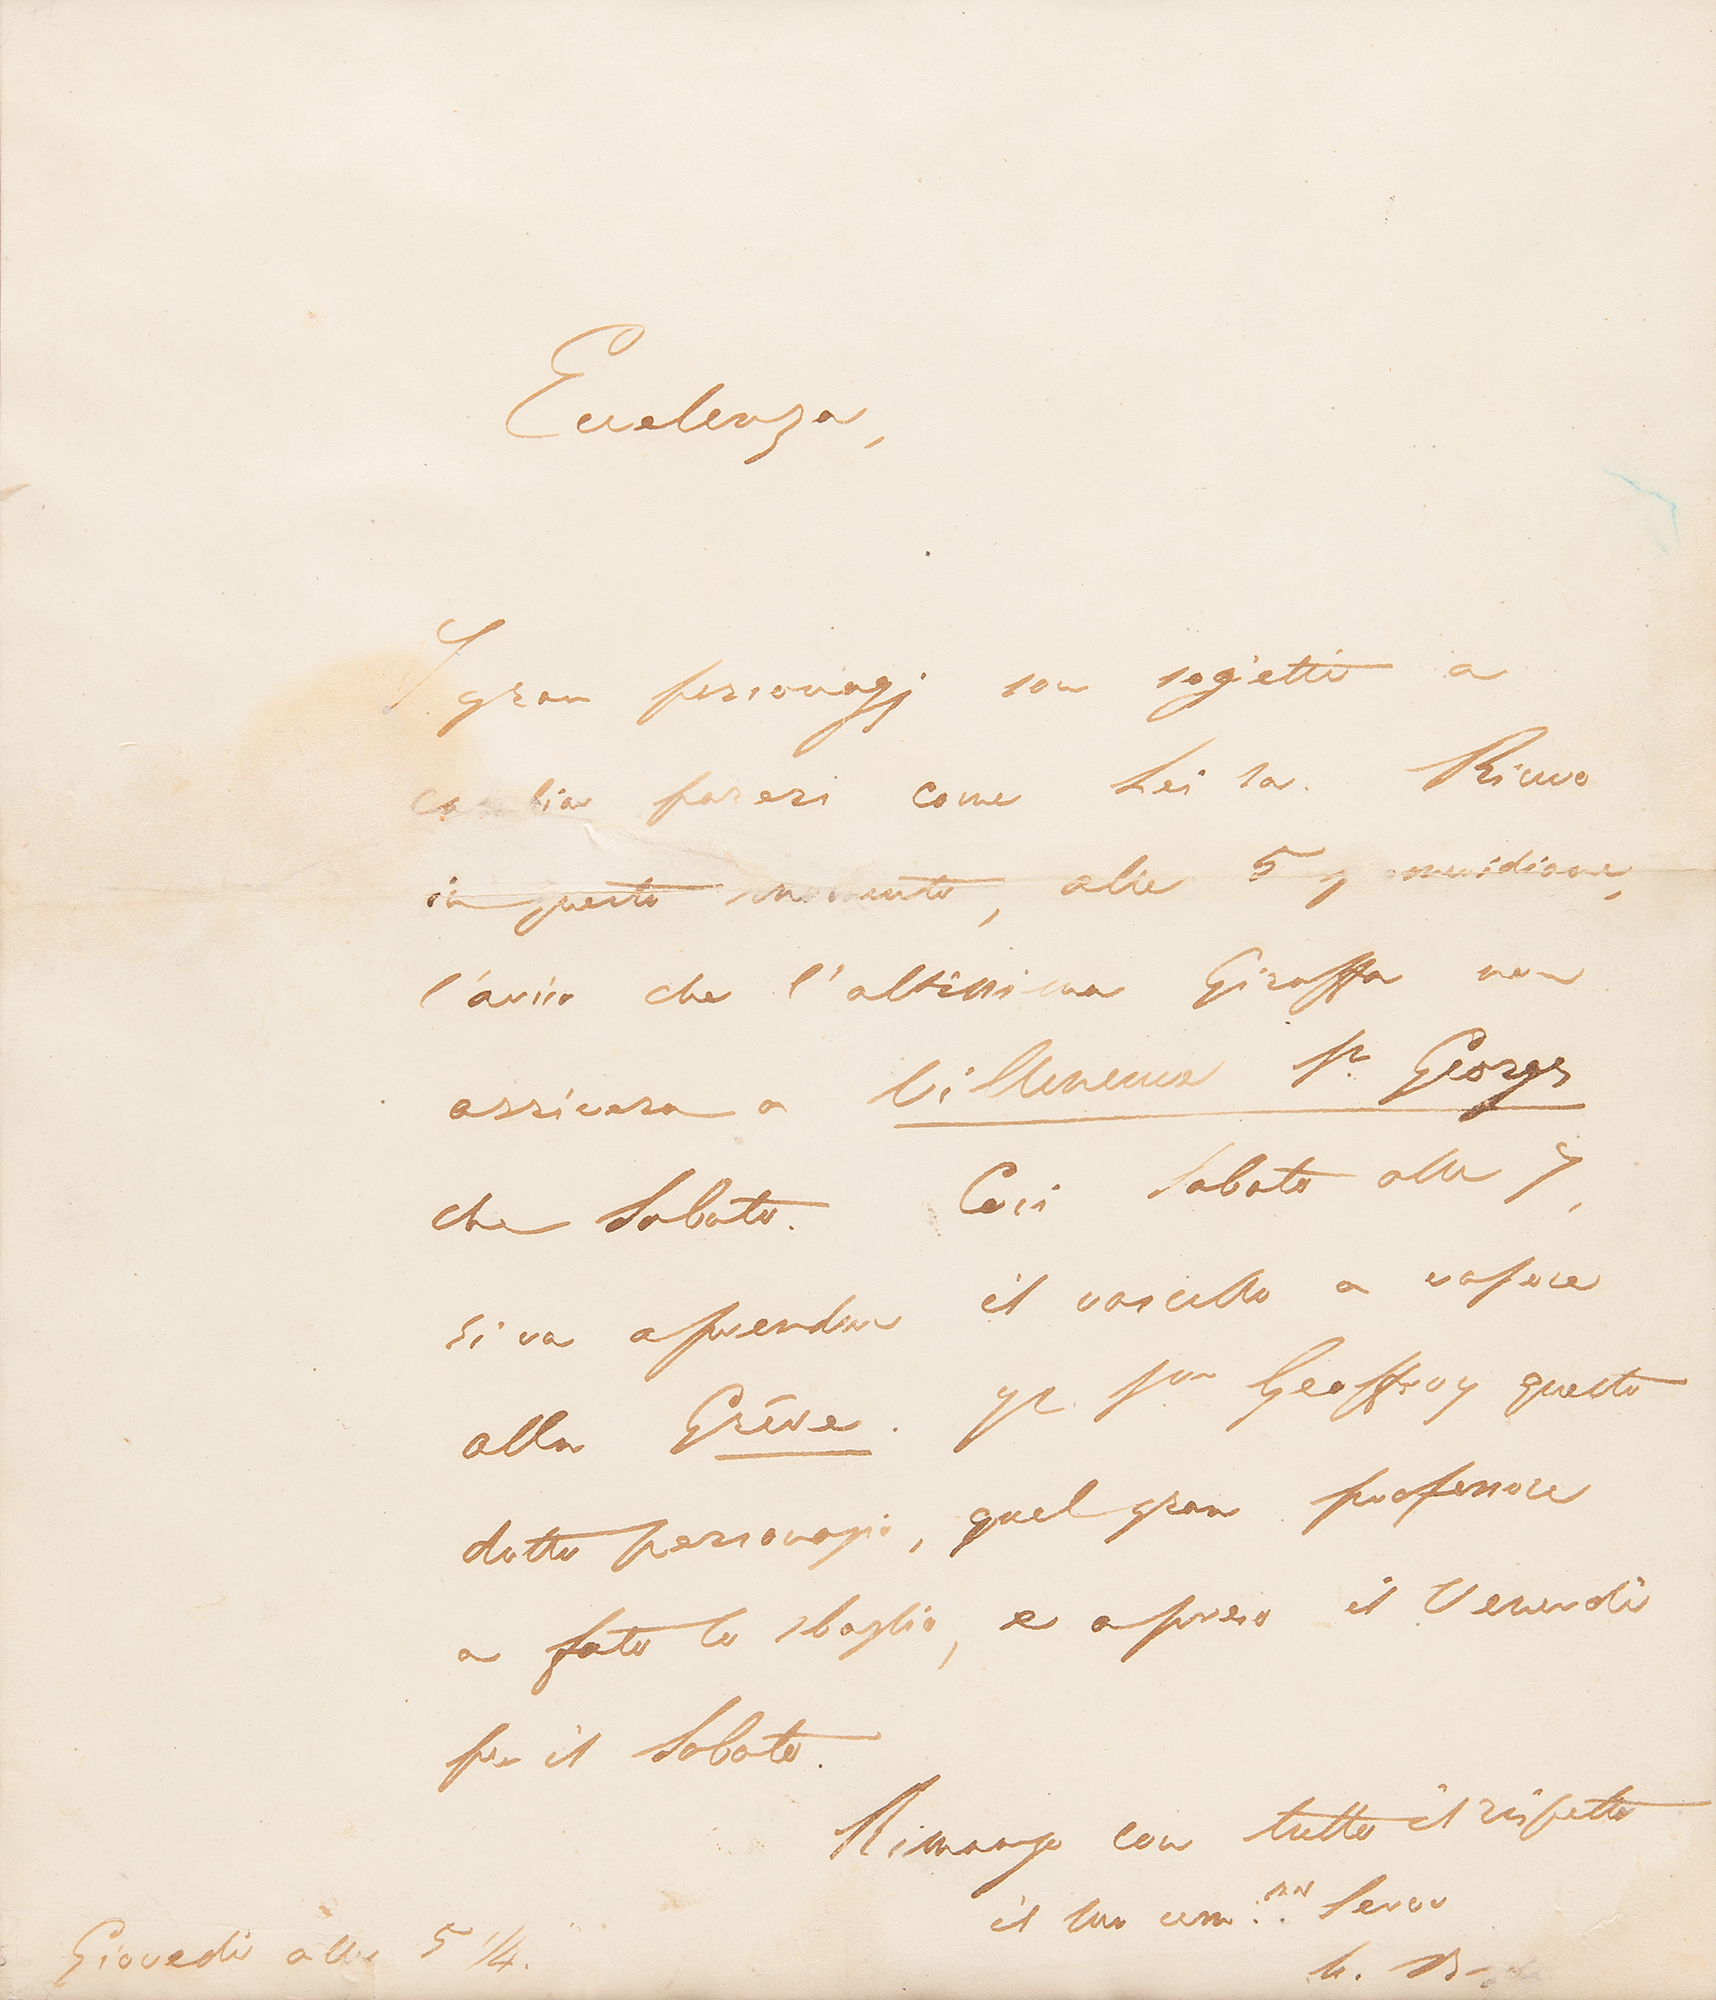 Eccelenza,
I gran personagj son sogietti a
cambiar pareri come Lei sa. Ricevo
in questo momento, alle 5 pomeridiane,
l'aviso che l'altissima Giraffa non
arrivera a Villeneuve St Georges
che Sabato. Cosi Sabato alle 7,
si va a prendere il vascello a vapore
alla Grève. Geoffroy questo
dotto personagio, quel gran professore
a fato lo sbaglio, e a preso il Venerdi
per il Sabato.
Rimango con tutto il rispetto
il suo um. Servo
Giovedi alle 5 1/4.